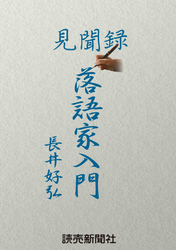 見聞録
落語家入門
長井好弘
読売新聞社